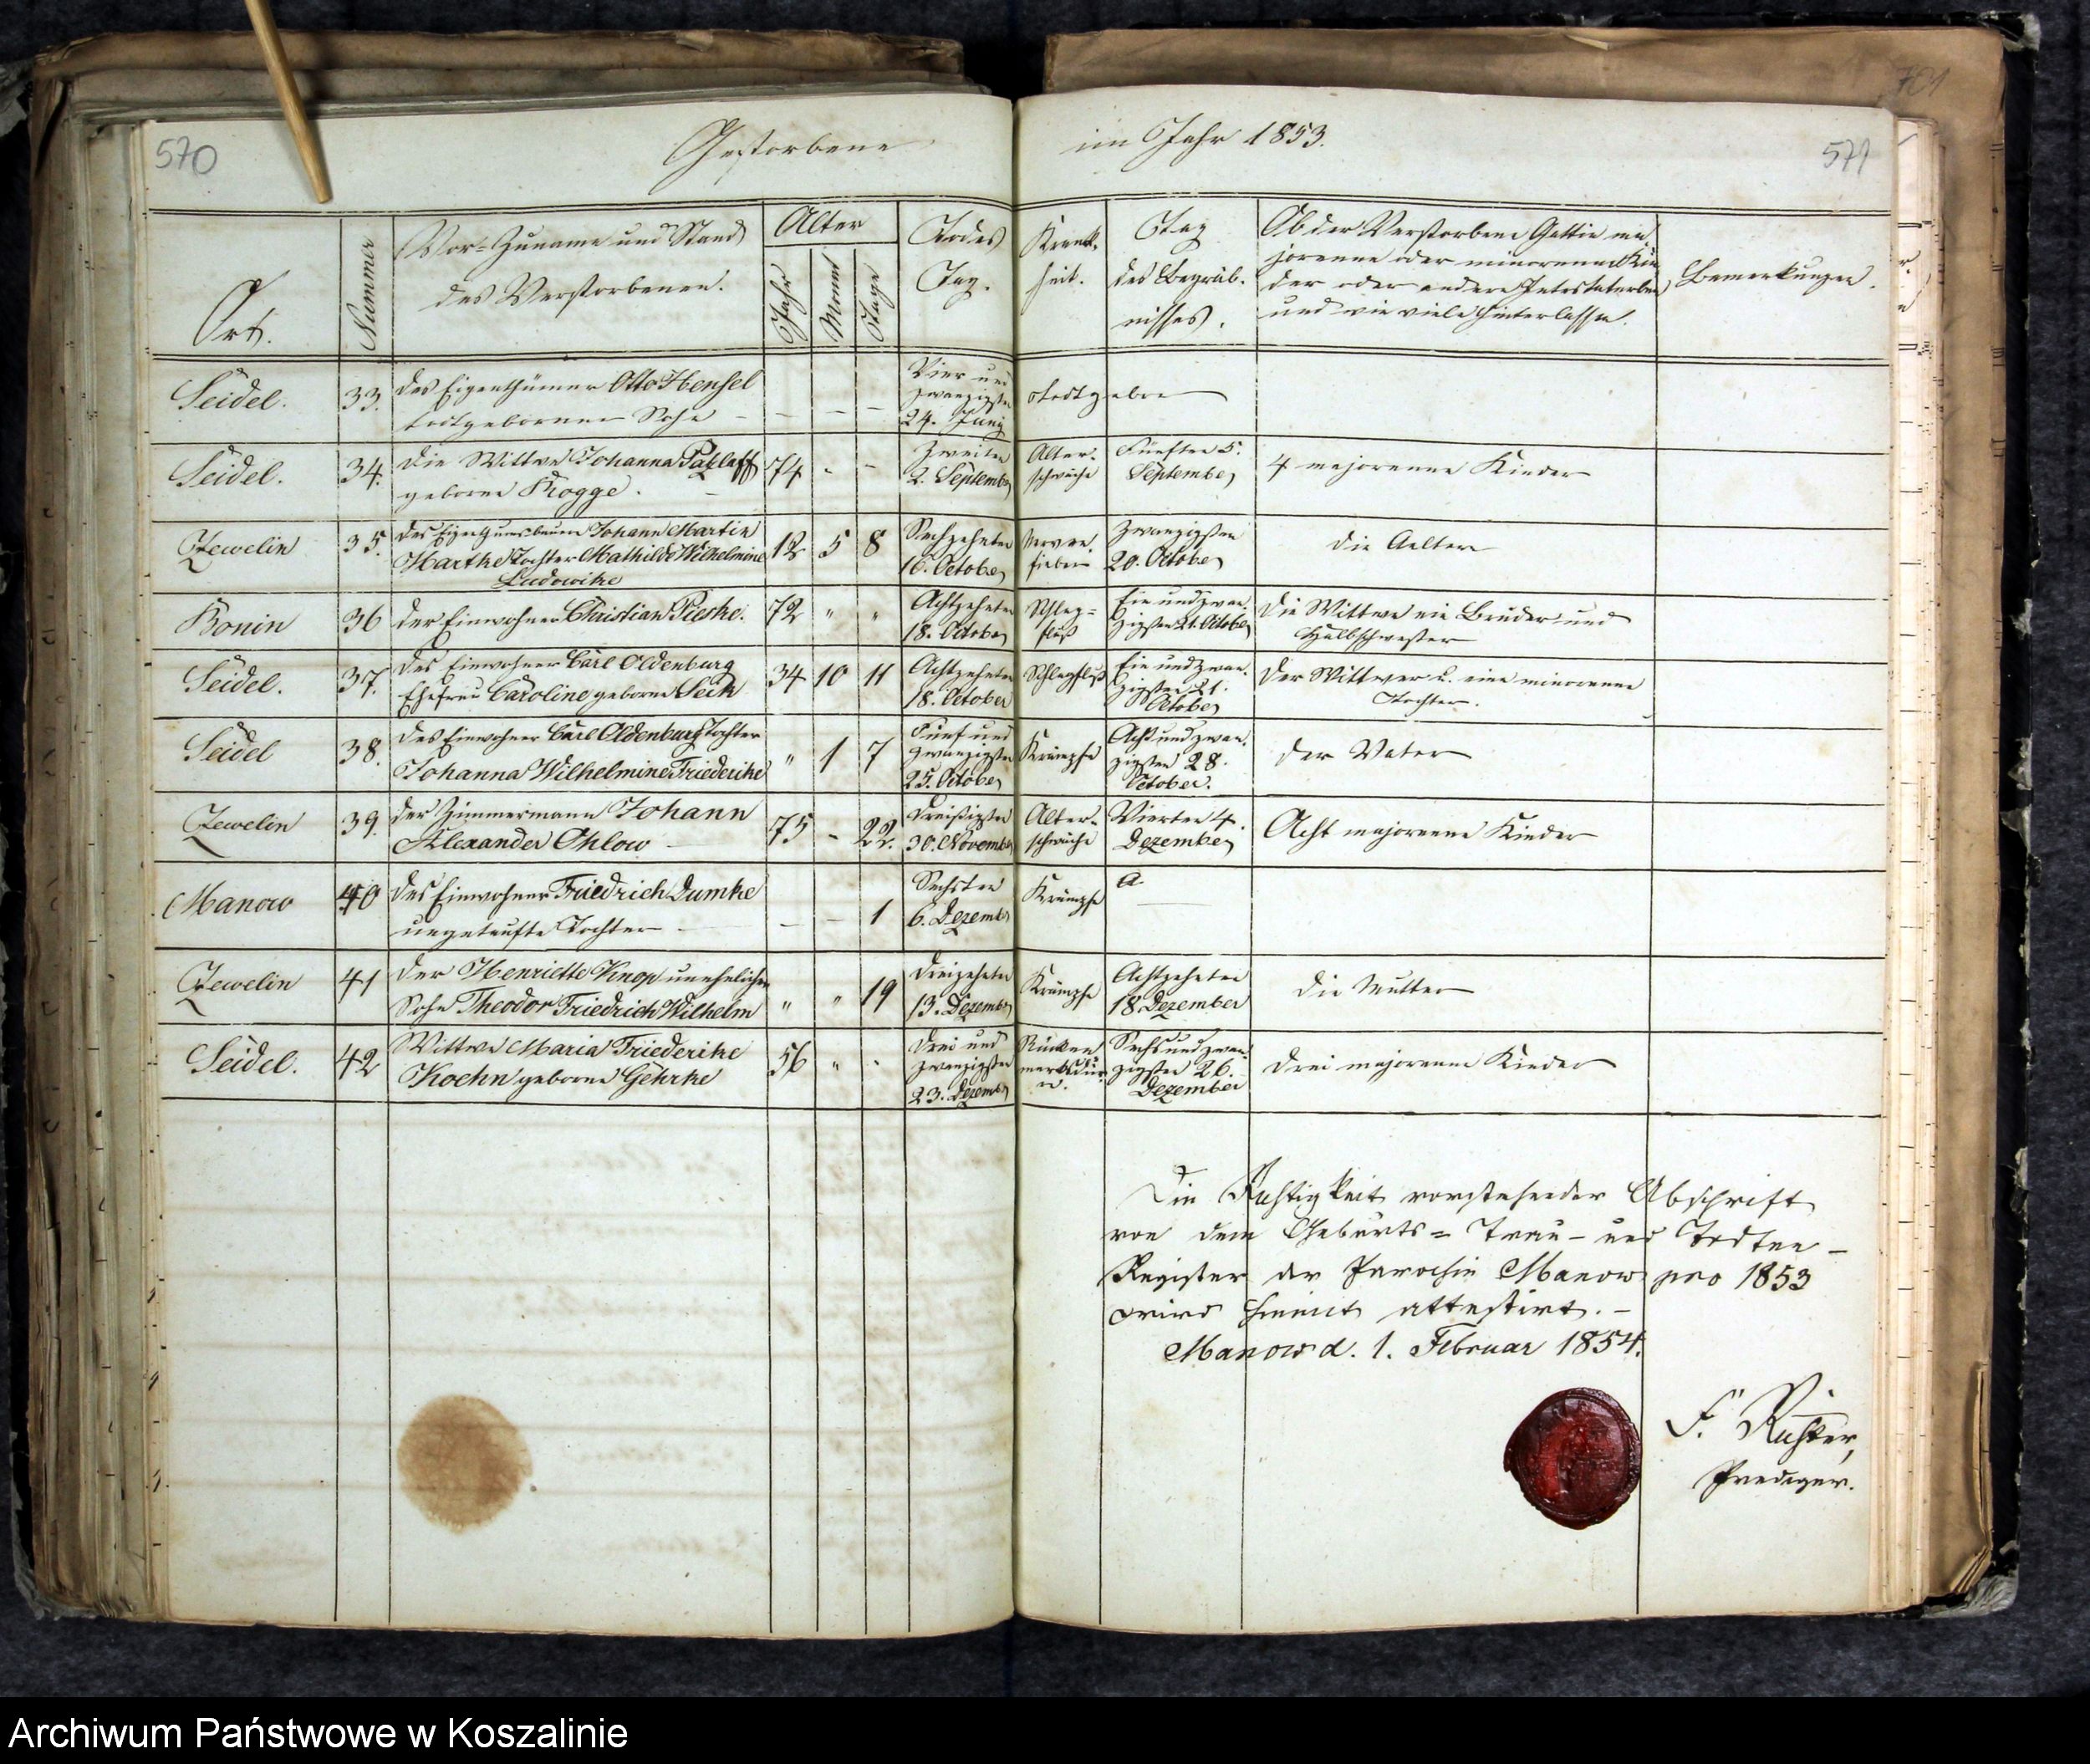 570
701
571
Gestorbene im Jahr 1853.
Ort.
Nummer
Vor- Zuname und Stand
des Verstorbenen.
Alter
Jahr
Monat
Tage
Todes
Tag.
Krank-
heit.
Tag
des Begräb-
nisses.
Ob der Verstorbene Gattin ma-
jorenne oder minorenne Kin
der oder andere Intestaterben
und wie viele hinterlassen.
Bemerkungen.
Seidel. 33.
des Eigenthümer Otto Hensel
todtgeborener Sohn - - - -
Vier und
zwanzigsten
24. Juny
todtgeboren
Seidel. 34.
die Wittwe Johanna Patzlaff
geborne Rogge. - 74 - -
Zweiten
2. September
Alter-
schwäche
Fünften 5.
September
4 majorenne Kinder
Zewelin 35.
des Johann Martin
Hartke Tochter Mathilde Wilhelmine
Ludowike
12 5 8
Sechzehnten
16. October
Nerven-
fieber
Zwanzigsten
20. October
die Aeltern
Bonin 36
der Einwohner Christian Pieske. 72 " "
Achtzehnten
18. October
Schlag-
fluß
Ein und zwan-
zigsten 21. October
die Wittwe ein Bruder und
Halbschwester
Seidel. 37.
des Einwohner Carl Oldenburg
Ehefrau Caroline geborne Seik
34 10 11
Achtzehnten
18. October
Schlagfluß
Ein und zwan-
zigsten 21.
October
der Wittwer u. eine minorenne
Tochter.
Seidel 38.
des Einwohner Carl Oldenburg Tochter
Johanna Wilhelmine Friederike
" 1 7
Fünf und
zwanzigsten
25. October
Krämpfe
Acht und zwan-
zigsten 28.
October.
der Vater
Zewelin 39.
der Zimmermann Johann
Alexander Ohlow -
75 - 22.
Dreißigsten
30. November
Alter-
schwäche
Vierten 4.
Dezember
Acht majorenne Kinder
Manow 40
des Einwohner Friedrich Dumke
ungetaufte Tochter -
- - 1
Sechsten
6. Dezember
Krämpfe
Zewelin 41
der Henriette Knop unehelicher
Sohn Theodor Friedrich Wilhelm
" " 19
Dreizehnten
13. Dezember
Krämpfe
Achtzehnten
18. Dezember
die Mutter
Seidel. 42
Wittwe Maria Friederike
Koehn geborne Gehrke
56 " "
Drei und
zwanzigsten
23. Dezember
Rücken
Sechs und zwan-
zigsten 26.
Dezember
drei majorenne Kinder
Die Richtigkeit vorstehender Abschrift
von dem Geburts- Trau- und Todten-
Register der Parochie Manow pro 1853
wird hiemit attestirt. -
Manow d. 1. Februar 1854.
F. Richter,
Prediger.
Archiwum Państwowe w Koszalinie